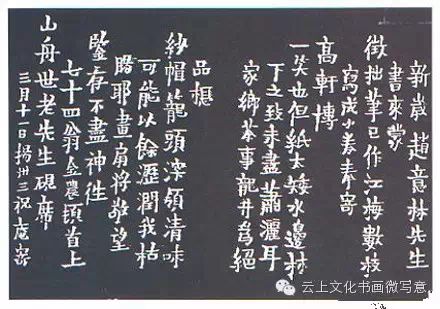 新歲趙意林先生
書來蒙
徵拙筆已作江梅數枝
寫成小卷奉寄
高軒博
一笑也但紙太矮水邊林
下之致未盡蕭灑耳
家鄉茶事龍井爲絕
品想
紗帽籠頭深領清味
可能以餘瀝潤我枯
腸耶畫扇將敬望
鑒存不盡神往
七十四翁金農頓首上
山舟世老先生硯席
三月十一日揚州三祝庵寄
云上文化书画微写意